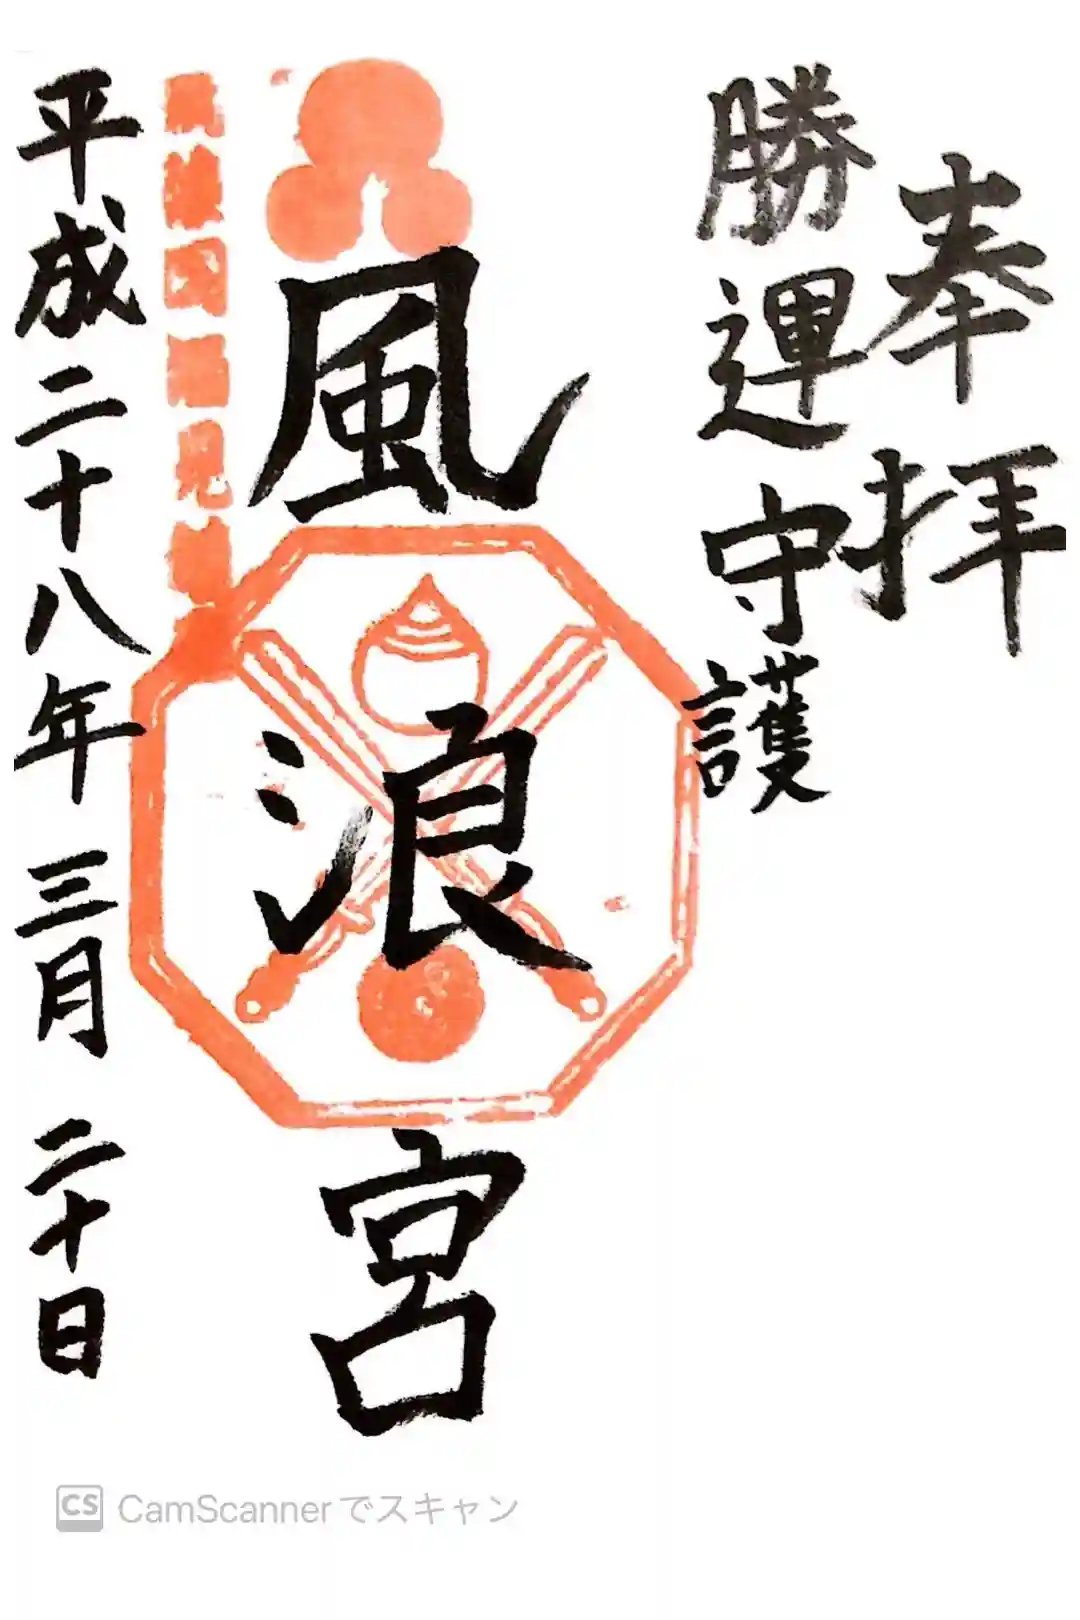 奉拝
勝運守護
風浪宮
平成二十八年三月二十日
CS CamScannerでスキャン